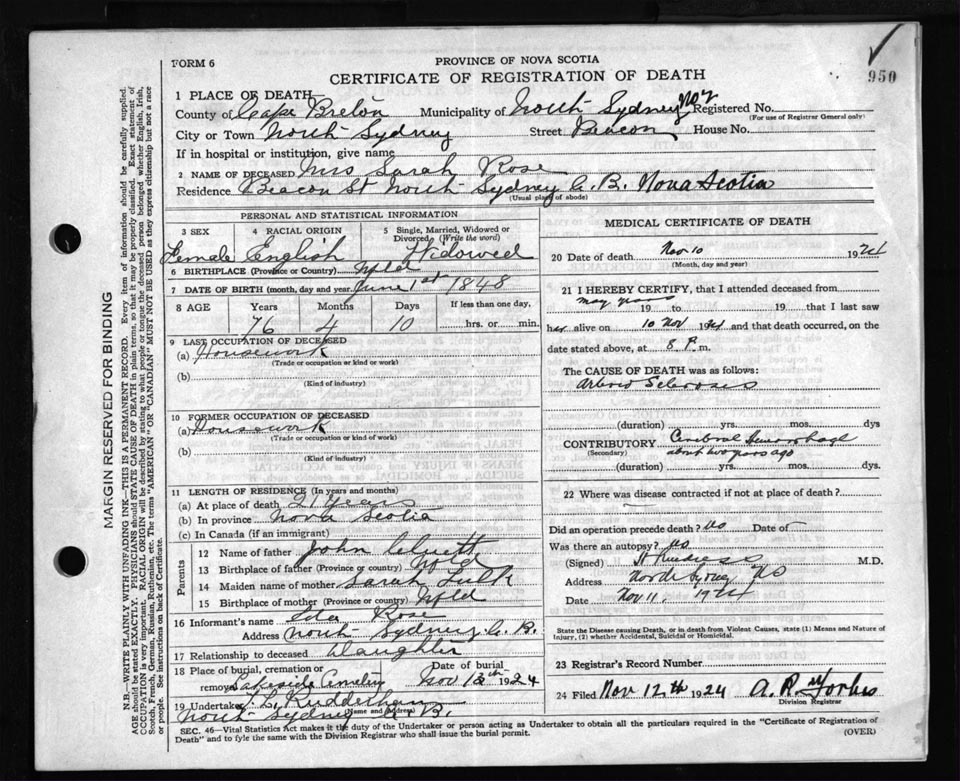 FORM 6
PROVINCE OF NOVA SCOTIA
CERTIFICATE OF REGISTRATION OF DEATH
950
1 PLACE OF DEATH—
County of Cape Breton Municipality of North Sydney No 2 Registered No.
(For use of Registrar General only)
City or Town North Sydney Street Beacon House No.
If in hospital or institution, give name
2 NAME OF DECEASED Mrs Sarah Rose
Residence Beacon St North Sydney C. B. Nova Scotia
(Usual place of abode)
PERSONAL AND STATISTICAL INFORMATION
3 SEX
Female
4 RACIAL ORIGIN
English
5 Single, Married, Widowed or
Divorced (Write the word)
Widowed
6 BIRTHPLACE (Province or Country) Nfld
7 DATE OF BIRTH (month, day and year) June 1st 1848
8 AGE Years Months Days If less than one day,
76 4 10 hrs. or min.
9 LAST OCCUPATION OF DECEASED
(a) Housework
(Trade or occupation or kind or work)
(b)
(Kind of industry)
10 FORMER OCCUPATION OF DECEASED
(a) Housework
(Trade or occupation or kind or work)
(b)
(Kind of industry)
11 LENGTH OF RESIDENCE (In years and months)
(a) At place of death 21 Years
(b) In province Nova Scotia
(c) In Canada (if an immigrant)
Parents
12 Name of father John Cluett
13 Birthplace of father (Province or country) Nfld
14 Maiden name of mother Sarah
15 Birthplace of mother (Province or country) Nfld
16 Informant's name Rose
Address North Sydney C. B.
17 Relationship to deceased Daughter
18 Place of burial, cremation or
removal Lakeside Cemetery
Date of burial
Nov 13th 1924
19 Undertaker
(Name and Address)
North Sydney C. B.
MEDICAL CERTIFICATE OF DEATH
20 Date of death Nov 10 1924
(Month, day and year)
21 I HEREBY CERTIFY, that I attended deceased from
many years 19 to 19 that I last saw
her alive on 10 Nov 1924 and that death occurred, on the
date stated above, at 8 P. m.
The CAUSE OF DEATH was as follows:
Arterio Sclerosis
(duration) yrs. mos. dys
CONTRIBUTORY Cerebral Hemorrhage
(Secondary) about two years ago
(duration) yrs. mos. dys.
22 Where was disease contracted if not at place of death?
Did an operation precede death? No Date of —
Was there an autopsy? No
(Signed) M.D.
Address North Sydney NS
Date Nov 11. 1924
State the Disease causing Death, or in death from Violent Causes, state (1) Means and Nature of
Injury, (2) whether Accidental, Suicidal or Homicidal.
23 Registrar's Record Number
24 Filed Nov 12th 1924 A. R. Forbes
Division Registrar
SEC. 46—Vital Statistics Act makes it the duty of the Undertaker or person acting as Undertaker to obtain all the particulars required in the "Certificate of Registration of
Death" and to fyle the same with the Division Registrar who shall issue the burial permit.
(OVER)
MARGIN RESERVED FOR BINDING
N.B.—WRITE PLAINLY WITH UNFADING INK—THIS IS A PERMANENT RECORD. Every item of information should be carefully supplied.
AGE should be stated EXACTLY. PHYSICIANS should STATE CAUSE OF DEATH in plain terms, so that it may be properly classified. Exact statement of
OCCUPATION is very important. RACIAL ORIGIN will be described by stating to what people or tongue the deceased person belonged whether English, Irish,
Scotch, French, German, Russian, Ruthenian, etc. The terms "AMERICAN" OR "CANADIAN" MUST NOT BE USED as they express citizenship but not a race
or people. See instructions on back of Certificate.